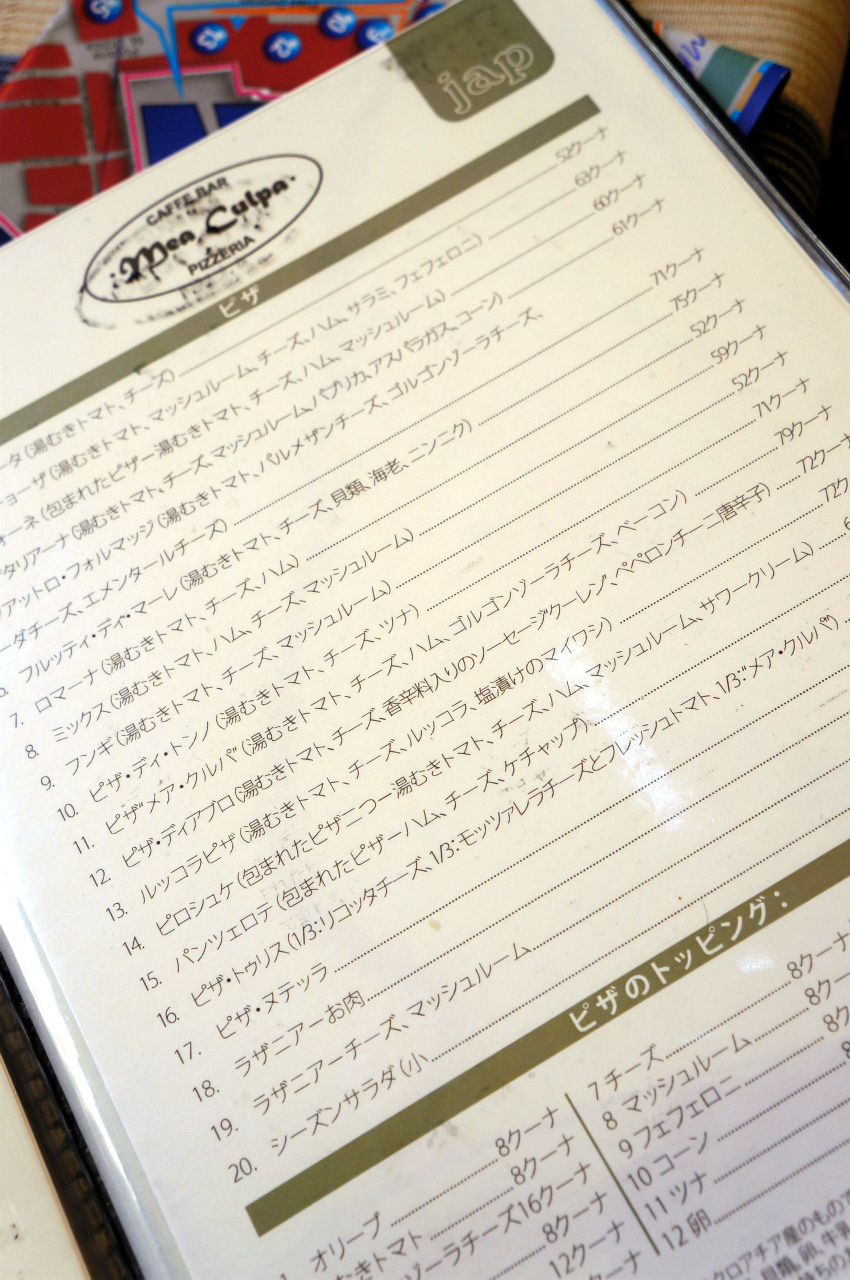 jap
CAFFE BAR
Mea Culpa
PIZZERIA
ピザ
ータ (湯むきトマト、チーズ) 52クーナ
ョーザ (湯むきトマト、マッシュルーム、チーズ、ハム、サラミ、フェフェロニ) 63クーナ
ォーネ (包まれたピザー湯むきトマト、チーズ、ハム、マッシュルーム) 60クーナ
タリアーナ (湯むきトマト、チーズ、マッシュルーム、パプリカ、アスパラガス、コーン) 61クーナ
アットロ・フォルマッジ (湯むきトマト、パルメザンチーズ、ゴルゴンゾーラチーズ、
ーダチーズ、エメンタールチーズ) 71クーナ
フルッティ・ディ・マーレ (湯むきトマト、チーズ、貝類、海老、ニンニク) 75クーナ
7. ロマーナ (湯むきトマト、チーズ、ハム) 52クーナ
8. ミックス (湯むきトマト、ハム、チーズ、マッシュルーム) 59クーナ
9. フンギ (湯むきトマト、チーズ、マッシュルーム) 52クーナ
10. ピザ・ディ・トンノ (湯むきトマト、チーズ、ツナ) 71クーナ
11. ピザ"メア・クルパ" (湯むきトマト、チーズ、ハム、ゴルゴンゾーラチーズ、ベーコン) 79クーナ
12. ピザ・ディアブロ (湯むきトマト、チーズ、香辛料入りのソーセージ"クーレン"、ペペロンチーニ唐辛子) 72クーナ
13. ルッコラピザ (湯むきトマト、チーズ、ルッコラ、塩漬けのマイワシ) 72ク
14. ピロシュケ (包まれたピザ二つー湯むきトマト、チーズ、ハム、マッシュルーム、サワークリーム) 6
15. パンツェロテ (包まれたピザーハム、チーズ、ケチャップ)
16. ピザ・トゥリス (1/3:リコッタチーズ、1/3:モッツァレラチーズとフレッシュトマト、1/3:"メア・クルパ")
17. ピザ・ヌテッラ
18. ラザニアーお肉
19. ラザニアーチーズ、マッシュルーム
20. シーズンサラダ (小
ピザのトッピング:
オリーブ 8クーナ
むきトマト 8クーナ
ゾーラチーズ16クーナ
8クーナ
12クーナ
クーナ
7 チーズ 8クーナ
8 マッシュルーム 8クー
9 フェフェロニ 8ク
10 コーン 8
11 ツナ
12 卵
クロアチア産のもので
貝類、卵、牛乳